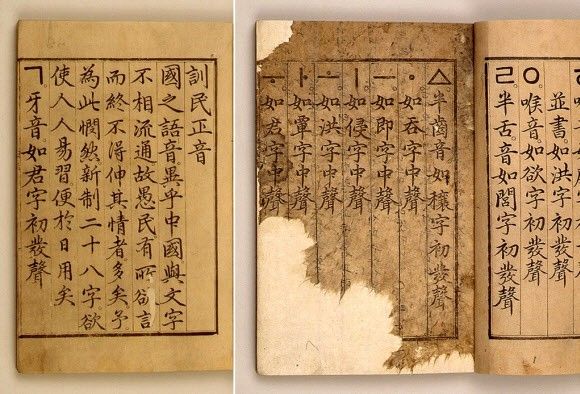 訓民正音
國之語音異乎中國與文字
不相流通故愚民有所欲言
而終不得伸其情者多矣予
為此憫然新制二十八字欲
使人人易習便於日用矣
ㄱ牙音如君字初發聲
並書如洪字初發聲
ㅇ喉音如欲字初發聲
ㄹ半舌音如閭字初發聲
ㅿ半齒音如穰字初發聲
ㆍ如吞字中聲
ㅡ如即字中聲
ㅣ如侵字中聲
ㅗ如洪字中聲
ㅏ如覃字中聲
ㅜ如君字中聲